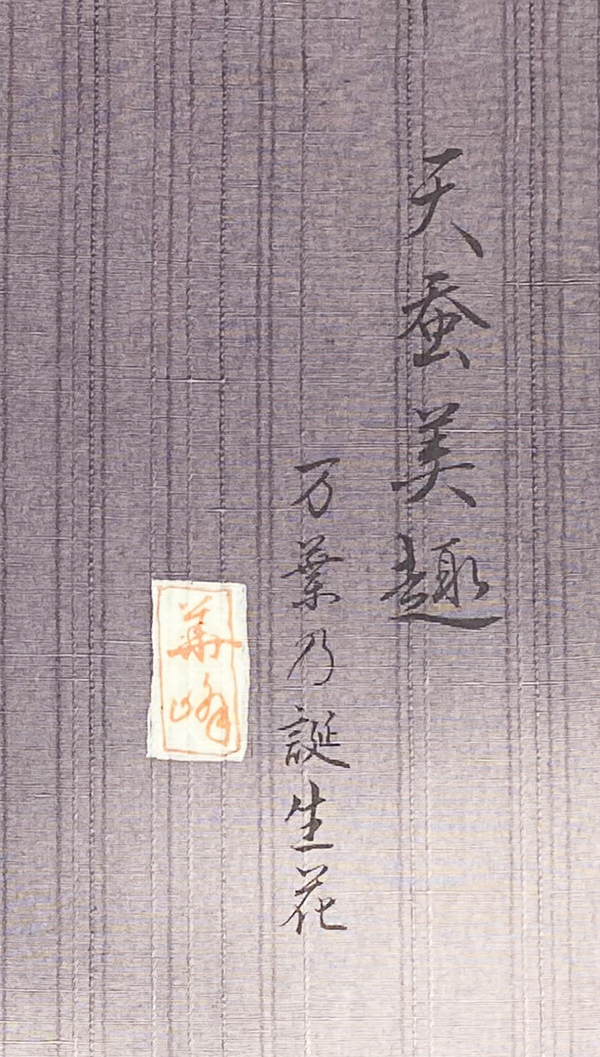 天蚕美趣
万葉乃誕生花
華峰